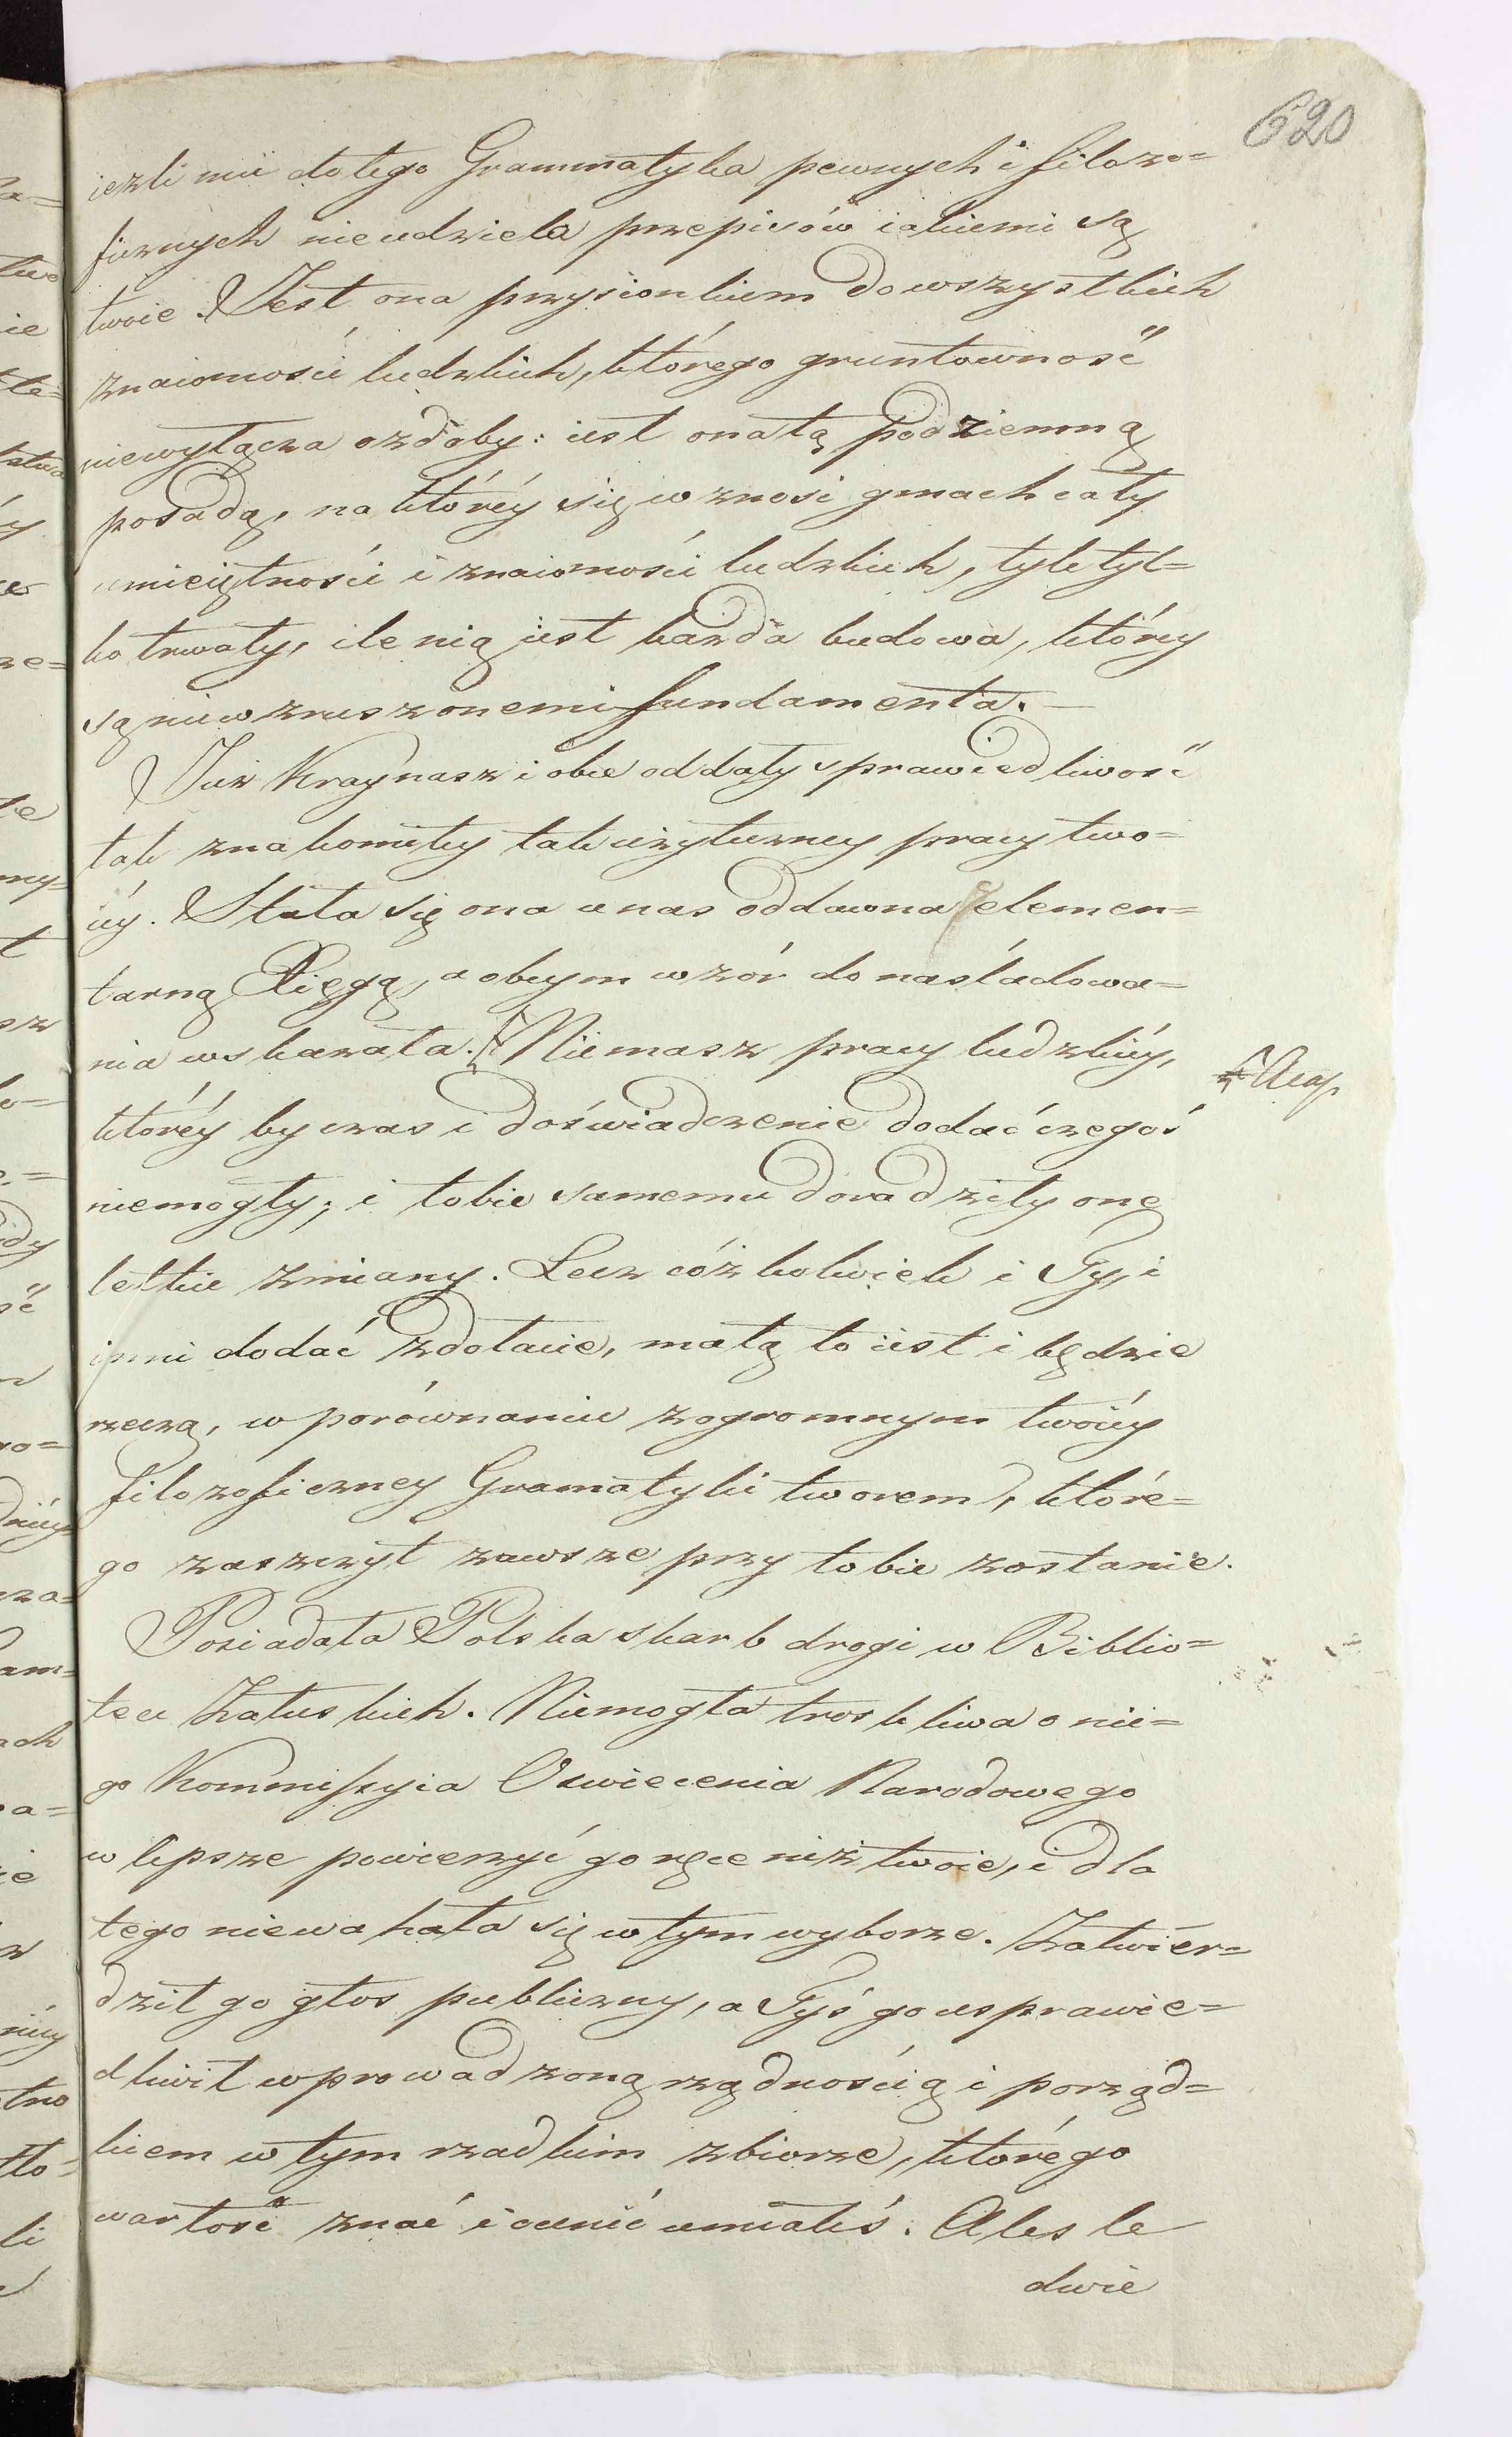 620
ieżli mu do tego Grammatyka pewnych i filozo=
ficznych nieudziela przepisów iakiemi są
twoie. Jest ona przysionkiem do wszystkich
znaiomości ludzkich, którego gruntowność
niewyłącza ozdoby: iest ona tą podziemną
posadą, na któréy się wznosi gmach cały
umieiętności i znaiomości ludzkich, tyle tyl=
ko trwały, ile nią iest każda budowa, któréy
są niewzruszonemi fundamenta.—
Już Kray nasz i obce oddały sprawiedliwość
tak znakomitéy tak użyteczney pracy two=
iéy. Stała się ona u nas oddawna elemen=
tarną Xięgą, a obcym wzór do naśladowa=
nia wskazała. Niemasz pracy ludzkiéy,
któréy by czas i doświadczenie dodać czegoś
niemogły; i tobie samemu doradziły one
lekkie zmiany. Lecz cóżkolwiek i Ty, i
inni dodać zdołacie, małą to iest i będzie
rzeczą, w porównaniu z ogromnym twoiéy
filozoficzney Gramatyki tworem, które=
go zaszczyt zawsze przy tobie zostanie.
Posiadała Polska skarb drogi w Biblio=
tece Załuskich. Niemogła troskliwa o nie=
go Kommissyia Oswiecenia Narodowego
w lepsze powierzyć go ręce niż twoie, i dla
tego niewahała się w tym wyborze. Zatwier=
dził go głos publiczny, a Tyś go usprawie=
dliwił wprowadzoną rządnością i porząd=
kiem w tym rzadkim zbiorze, którego
wartość znać i cenić umiałeś. Ales le
dwie